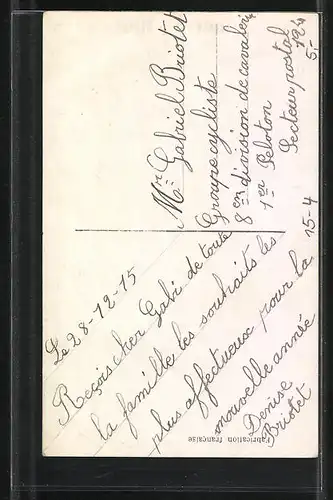 Mr Gabriel Briotet
Groupe cycliste
8em division de cavalerie
1er Peloton
Secteur postal
124
5.-
15-4
Le 28-12-15
Reçois cher Gabi de toute
la famille les souhaits les
plus affectueux pour la
nouvelle année
Denise
Briotet
Fabrication française